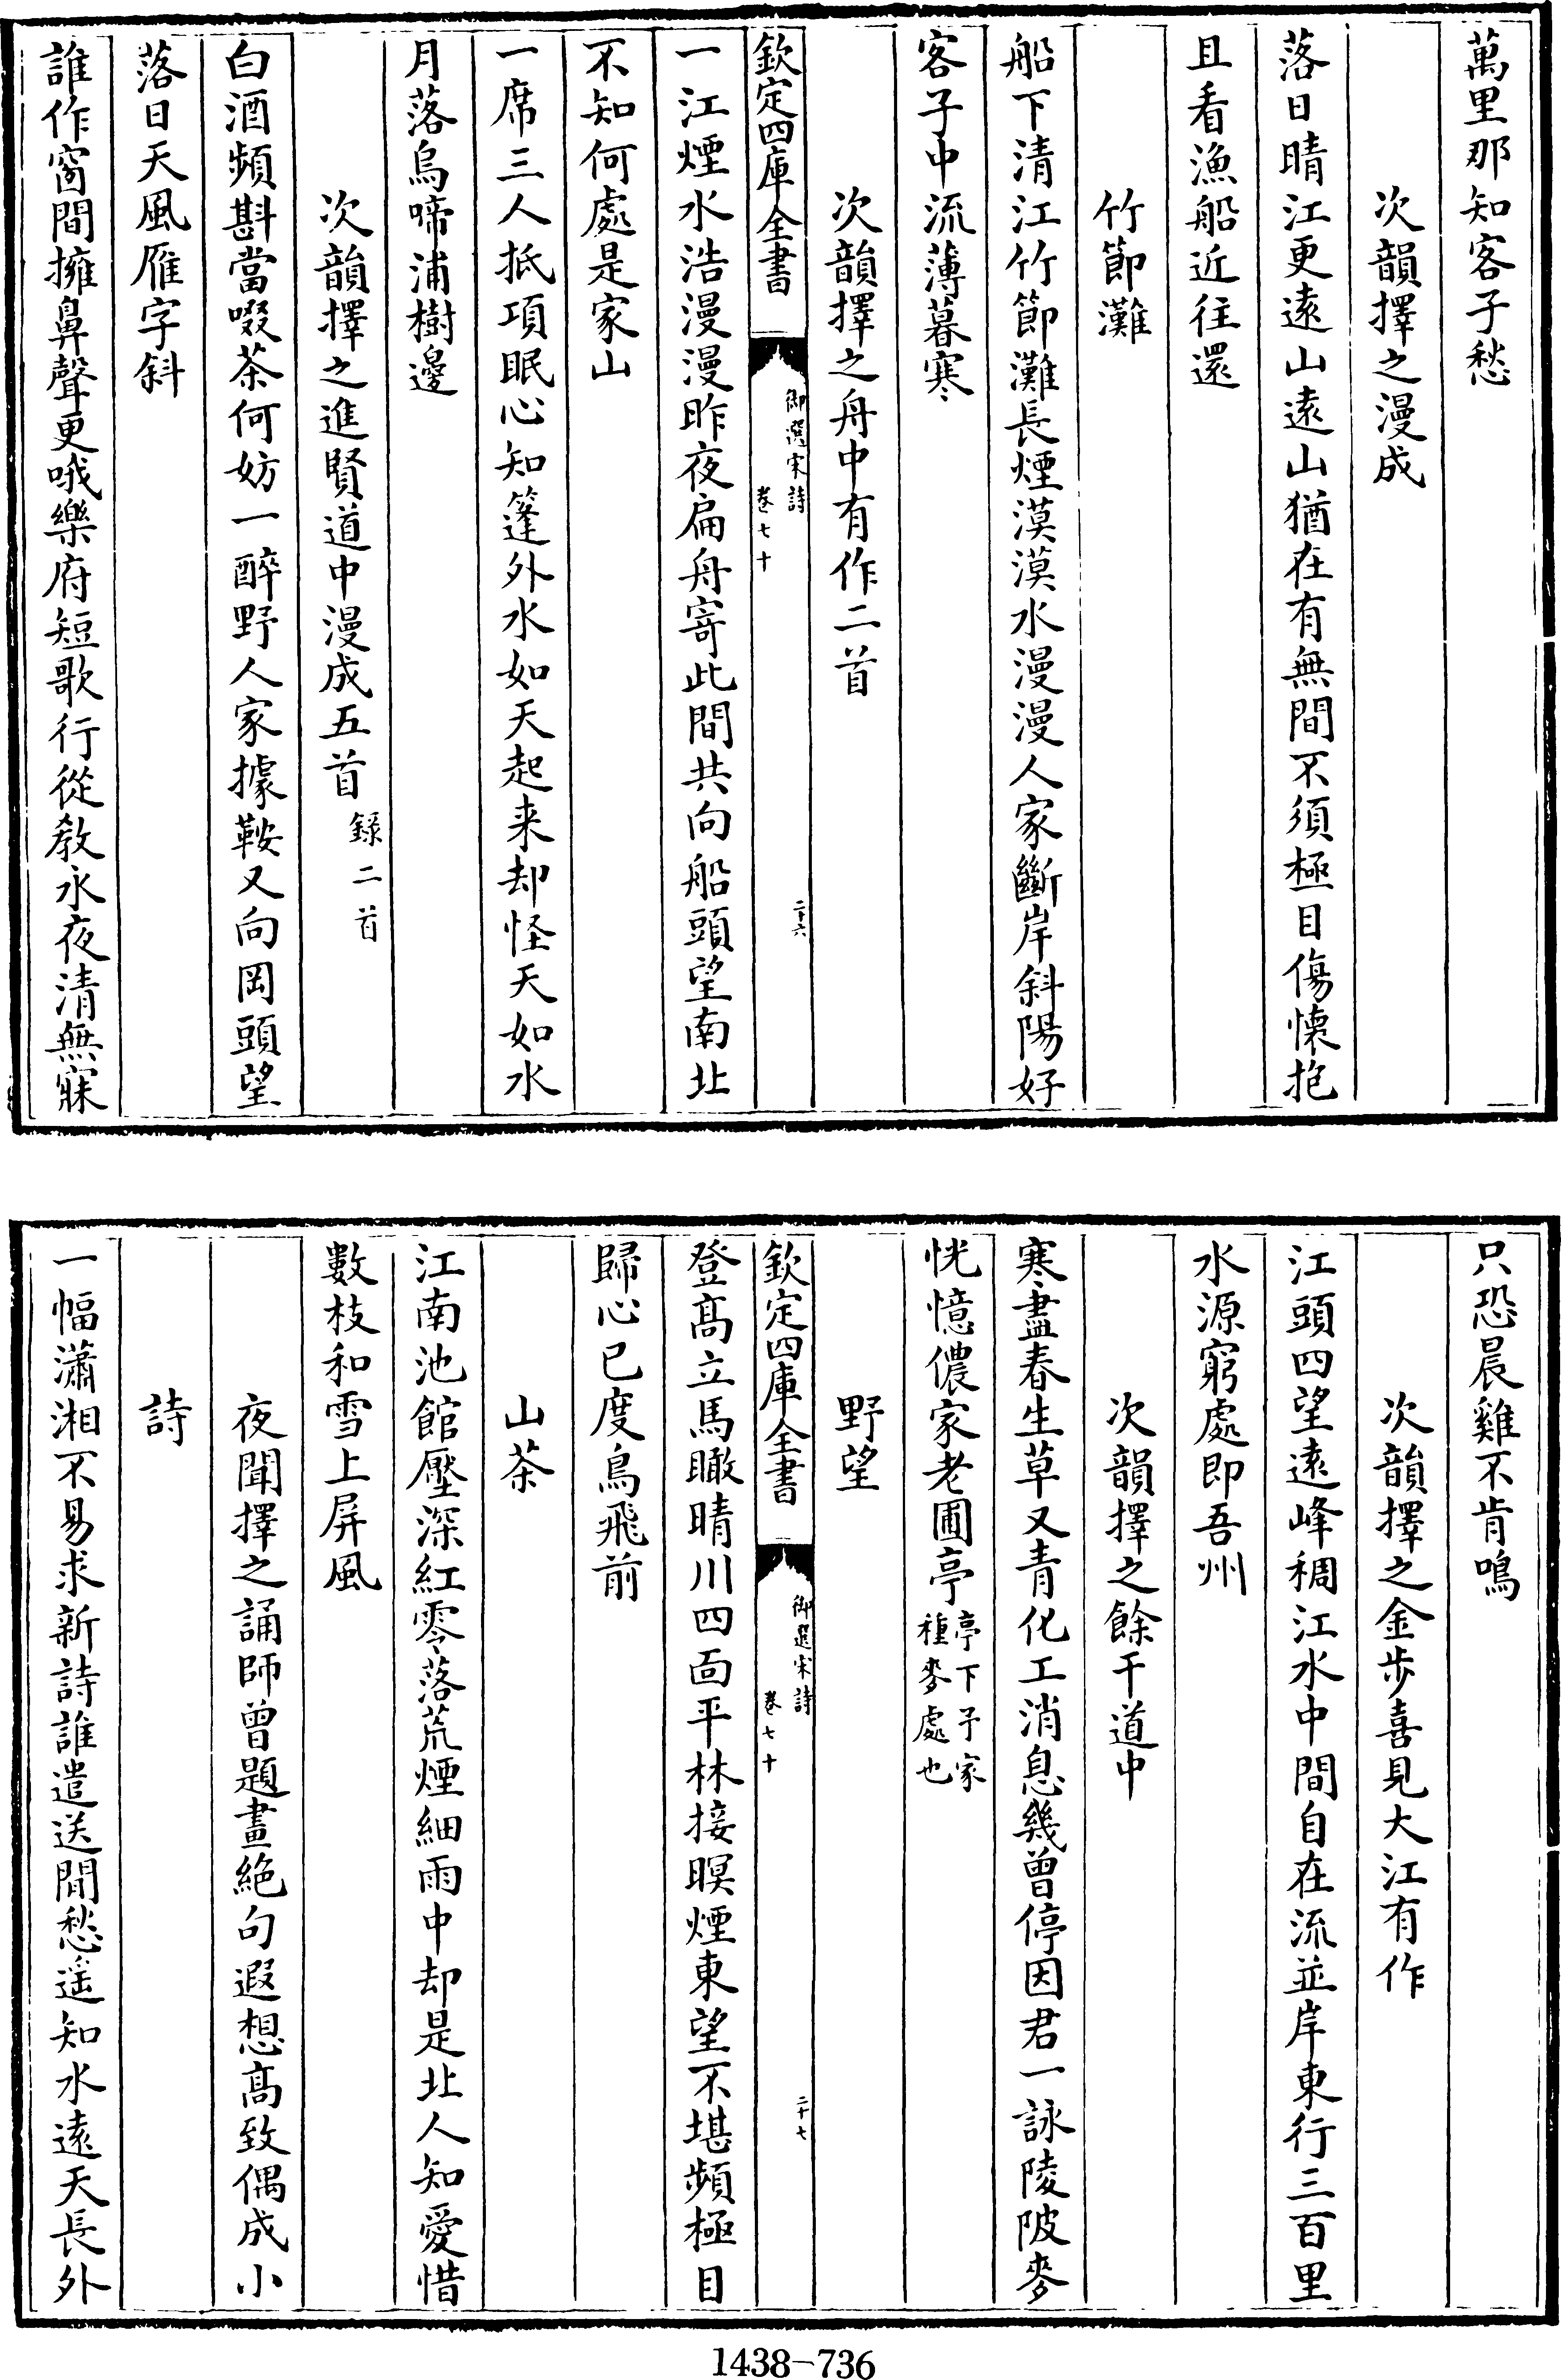 萬里那知客子愁
次韻擇之漫成
落日晴江更逺山逺山猶在有無間不須極目傷懷抱
且看漁船近往還
竹節灘
船下清江竹節灘長煙漠漠水漫漫人家斷岸斜陽好
客子中流薄暮寒
次韻擇之舟中有作二首
欽定四庫全書
御選宋詩
卷七十
二十六
一江煙水浩漫漫昨夜扁舟寄此間共向船頭望南北
不知何處是家山
一席三人抵項眠心知篷外水如天起来却怪天如水
月落烏啼浦樹邊
次韻擇之進賢道中漫成五首
録二首
白酒頻斟當啜茶何妨一醉野人家據鞍又向岡頭望
落日天風雁字斜
誰作窗間擁鼻聲更哦樂府短歌行從教永夜清無寐
只恐晨雞不肯鳴
次韻擇之金步喜見大江有作
江頭四望逺峰稠江水中間自在流並岸東行三百里
水源窮處即吾州
次韻擇之餘干道中
寒盡春生草又青化工消息幾曾停因君一詠陵陂麥
恍憶儂家老圃亭
亭下予家
種麥處也
野望
欽定四庫全書
御選宋詩
卷七十
二十七
登髙立馬瞰晴川四面平林接暝煙東望不堪頻極目
歸心已度鳥飛前
山茶
江南池館壓深紅零落荒煙細雨中却是北人知愛惜
數枝和雪上屏風
夜聞擇之誦師曾題畫絶句遐想髙致偶成小
詩
一幅瀟湘不易求新詩誰遣送閒愁遥知水逺天長外
1438-736